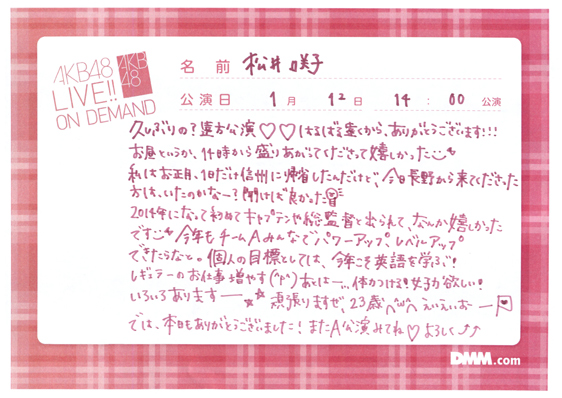 AKB48
LIVE!!
ON DEMAND
AKB
48
名前 松井咲子
公演日 1月 12日 14:00 公演
久しぶりの?遠方公演♡♡はるばる遠くから、ありがとうございます!!!
お昼というか、14時から盛りあがってくださって嬉しかった
私はお正月、1日だけ信州に帰省したんだけど、今日長野から来てくださった
方は、いたのかな〜?聞けば良かった
2014年になって初めてキャプテンや総監督と出られて、なんか嬉しかった
です 今年もチームAみんなでパワーアップ、レベルアップ
できたらなと。個人の目標としては、今年こそ英語を学ぶ!
レギュラーのお仕事増やす(^p^)あとは…、体力つける!女子力が欲しい!
いろいろあります── ☆☆ 頑張りますぜ、23歳 えいえいおー
では、本日もありがとうございました!またA公演みてね♡よろしく⤴⤴
DMM.com